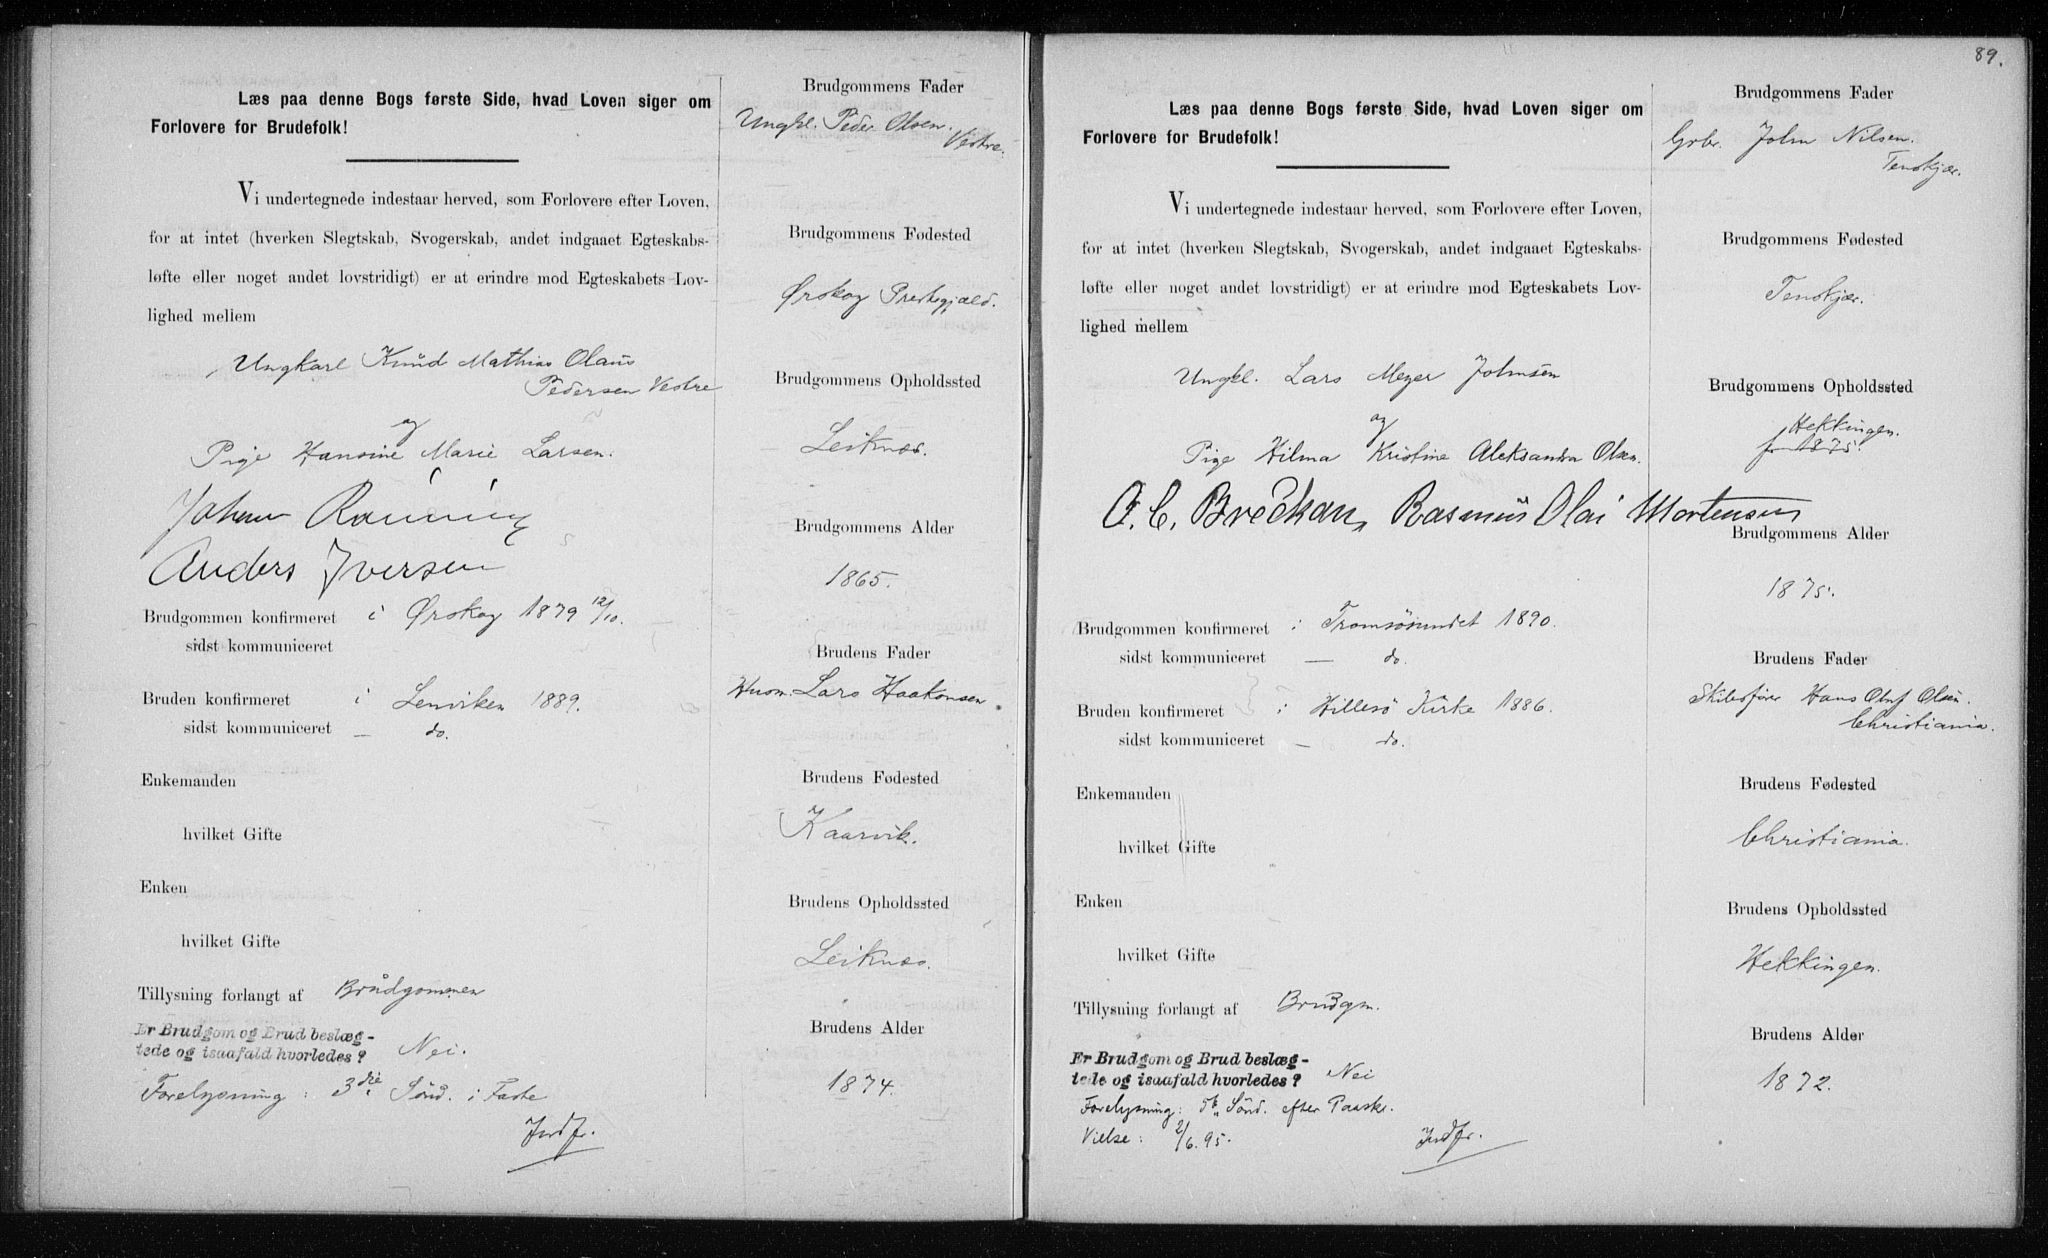 Læs paa denne Bogs første Side, hvad Loven siger om
Forlovere for Brudefolk!
Vi undertegnede indestaar herved, som Forlovere efter Loven,
for at intet (hverken Slegtskab, Svogerskab, andet indgaaet Egteskabs-
løfte eller noget andet lovstridigt) er at erindre mod Egteskabets Lov-
lighed mellem
Ungkarl Knud Mathias Olaus
Pedersen Vestre
og
Pige Hansine Marie Larsen.
Johan Rønning
Anders Iversen
Brudgommen konfirmeret i Ørskog 1879 12/10.
sidst kommuniceret
Bruden konfirmeret i Lenviken 1889.
sidst kommuniceret — do.
Enkemanden
hvilket Gifte
Enken
hvilket Gifte
Tillysning forlangt af Brudgommen
Er Brudgom og Brud beslæg-
tede og isaafald hvorledes? Nei.
Forelysning: 3die Sønd. i Faste
Indfr.
Brudgommens Fader
Ungkl. Peder Olsen.
Vestre.
Brudgommens Fødested
Ørskog Prestegjæld.
Brudgommens Opholdssted
Leiknes.
Brudgommens Alder
1865.
Brudens Fader
Husm. Lars Haakonsen
Brudens Fødested
Kaarvik.
Brudens Opholdssted
Leiknes.
Brudens Alder
1874.
89.
Læs paa denne Bogs første Side, hvad Loven siger om
Forlovere for Brudefolk!
Vi undertegnede indestaar herved, som Forlovere efter Loven,
for at intet (hverken Slegtskab, Svogerskab, andet indgaaet Egteskabs-
løfte eller noget andet lovstridigt) er at erindre mod Egteskabets Lov-
lighed mellem
Ungkl. Lars Meyer Johnsen
og
Pige Hilma Kristine Aleksandra Olsen.
O. C. Breckan, Rasmus Olai Mortensen
Brudgommen konfirmeret i Tromsøsundet 1890.
sidst kommuniceret — do.
Bruden konfirmeret i Hillesö Kirke 1886.
sidst kommuniceret — do.
Enkemanden
hvilket Gifte
Enken
hvilket Gifte
Tillysning forlangt af Brudgm.
Er Brudgom og Brud beslæg-
tede og isaafald hvorledes? Nei
Forelysning: Sønd. efter Paaske.
Vielse: 2/6.95.
Indfr.
Brudgommens Fader
Gbr. John Nilsen.
Tenskjær.
Brudgommens Fødested
Tenskjær.
Brudgommens Opholdssted
Hekkingen.
1875.
Brudgommens Alder
1875.
Brudens Fader
Skibsfører Hans Oluf Olsen.
Christiania.
Brudens Fødested
Christiania.
Brudens Opholdssted
Hekkingen.
Brudens Alder
1872.